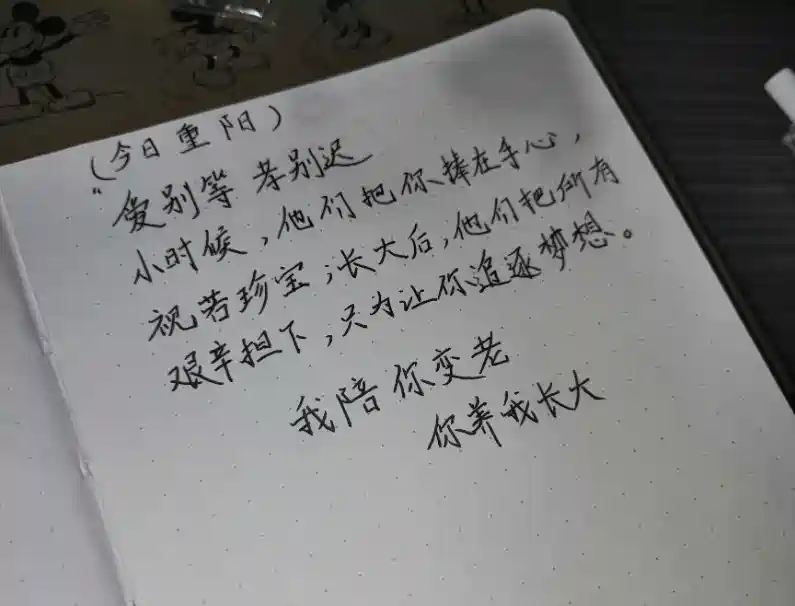 (今日重阳)
“爱别等 孝别迟
小时候,他们把你捧在手心,
视若珍宝;长大后,他们把所有
艰辛担下,只为让你追逐梦想。
我陪你变老
你养我长大